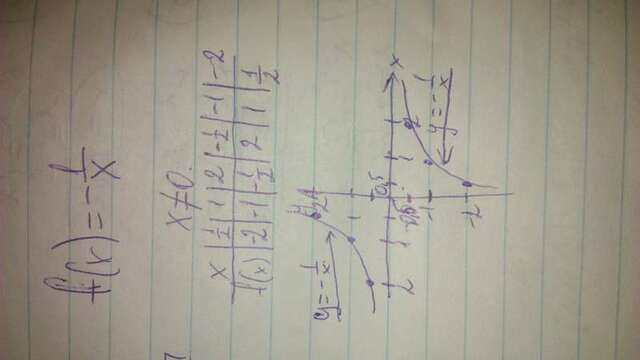 f(x) = -1/x
x ≠ 0.
x | 1/2 | 1 | 2 | -1/2 | -1 | -2
f(x) | -2 | -1 | -1/2 | 2 | 1 | 1/2
y
2
y = -1/x
1
0,5
x
-0,5
-1
y = -1/x
-2